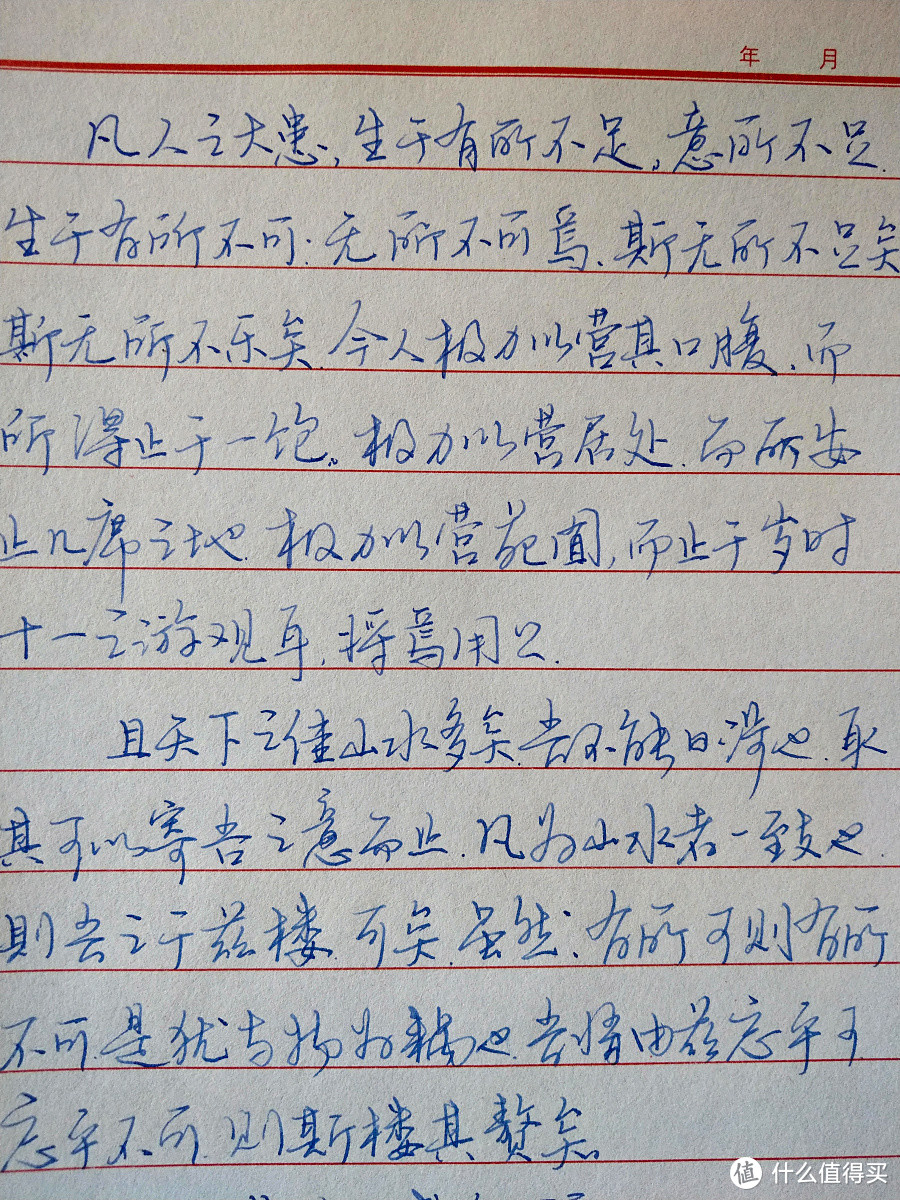 年 月
凡人之大患,生于有所不足。意所不足.
生于有所不可.无所不可焉.斯无所不足矣
斯无所不乐矣.今人极力以营其口腹.而
所得止于一饱。极力以营居处.而所安
止几席之地.极力以营苑囿,而止于岁时
十一之游观耳.将焉用
且天下之佳山水多矣.吾不能日涉也.取
其可以寄吾之意而止.凡为山水者一致也.
则吾之于兹楼.可矣.虽然.有所可则有所
不可.是犹与物为耦也.吾情由兹忘乎可
忘乎不可.则斯楼其赘矣。
值 什么值得买